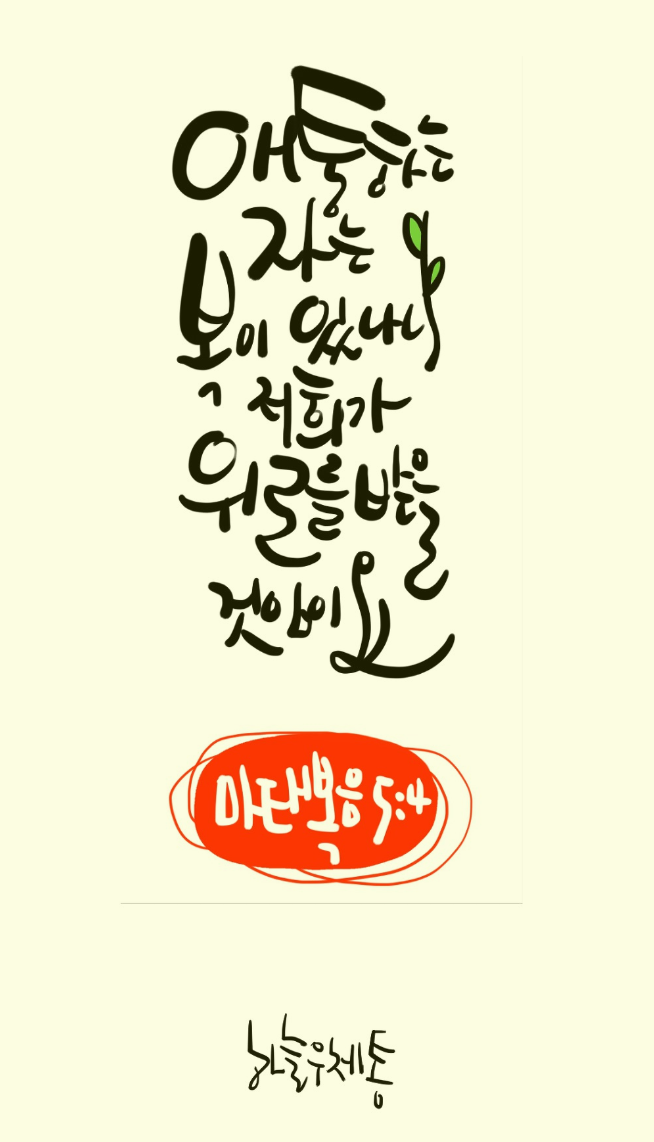 애통하는
자는
복이 있나니
저희가
위로를 받을
것임이요
마태복음 5:4
하늘우체통